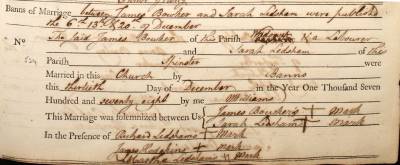 Banns of Marriage between James Bowker and Sarah Ledsham were published
the 6th 13th & 20th of December
No The Said James Bowker of this Parish a Labourer
and Sarah Ledsham of the
524 Parish Spinster were
Married in this Church by Banns
this thirtieth Day of December in the Year One Thousand Seven
Hundred and seventy eight by me Williams
This Marriage was solemnized between Us James Bowker's + Mark
Sarah Ledsham + Mark
In the Presence of Richard Ledsham's + Mark
James + Mark
Martha Ledsham's Mark